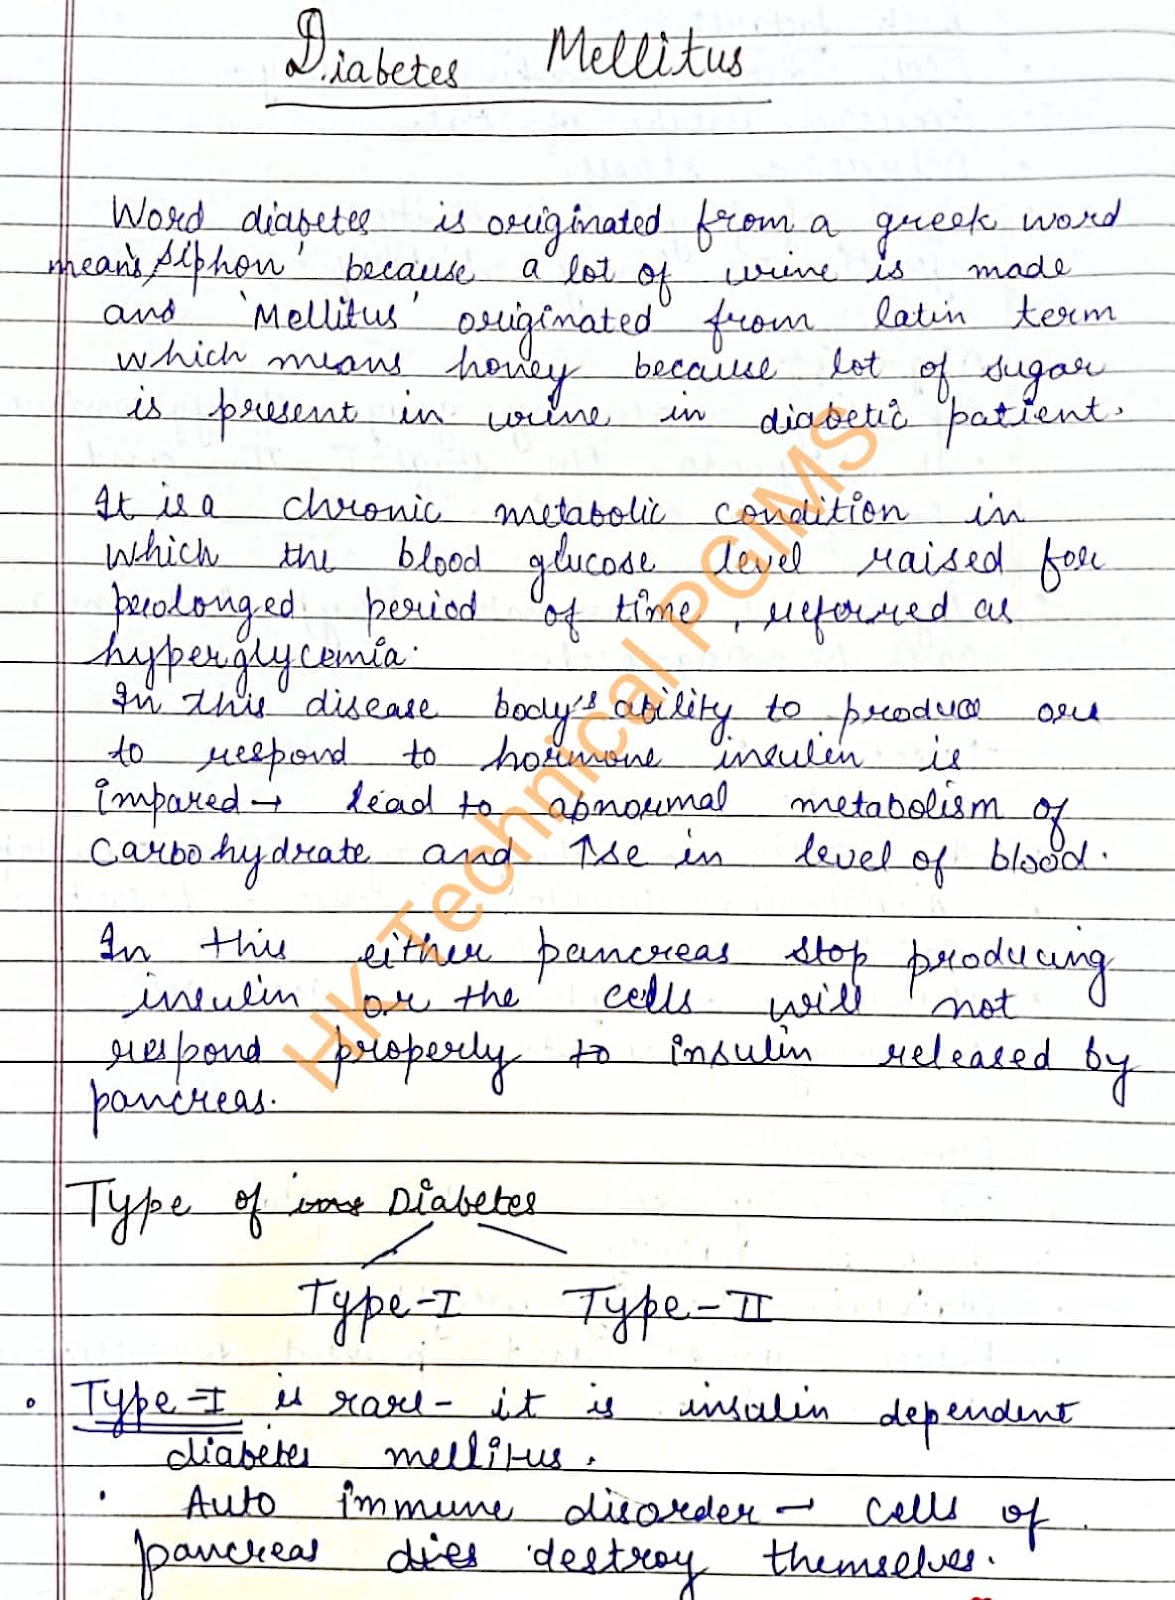 Diabetes Mellitus
Word diabetes is originated from a greek word
means 'siphon' because a lot of urine is made
and 'Mellitus' originated from latin term
which means honey because lot of sugar
is present in urine in diabetic patient.
It is a chronic metabolic condition in
which the blood glucose level raised for
prolonged period of time, referred as
hyperglycemia.
In this disease body's ability to produce or
to respond to hormone insulin is
impared → lead to abnormal metabolism of
carbohydrate and ↑se in level of blood.
In this either pancreas stop producing
insulin or the cells will not
respond properly to insulin released by
pancreas.
Type of Diabetes
Type-I Type-II
• Type-I is rare - it is insulin dependent
diabetes mellitus.
• Auto immune disorder → cells of
pancreas dies destroy themselves.
HK Technical PGIMS